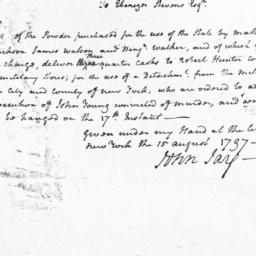 To Ebenezer Stevens Esqr.
of the Powder purchased for the use of the State by Matt
Clarkson James Watson and Benjn. Walker, and of which y
charge, deliver three quarter casks to Robert Hunter Co
military Store; for the use of a Detachmt. from the Mil
City and County of New York, who are ordered to at
execution of John Young convicted of murder, and
to be hanged on the 17th. Instant —
Given under my Hand at the
New York the 15 august 1797 —
John Jay —